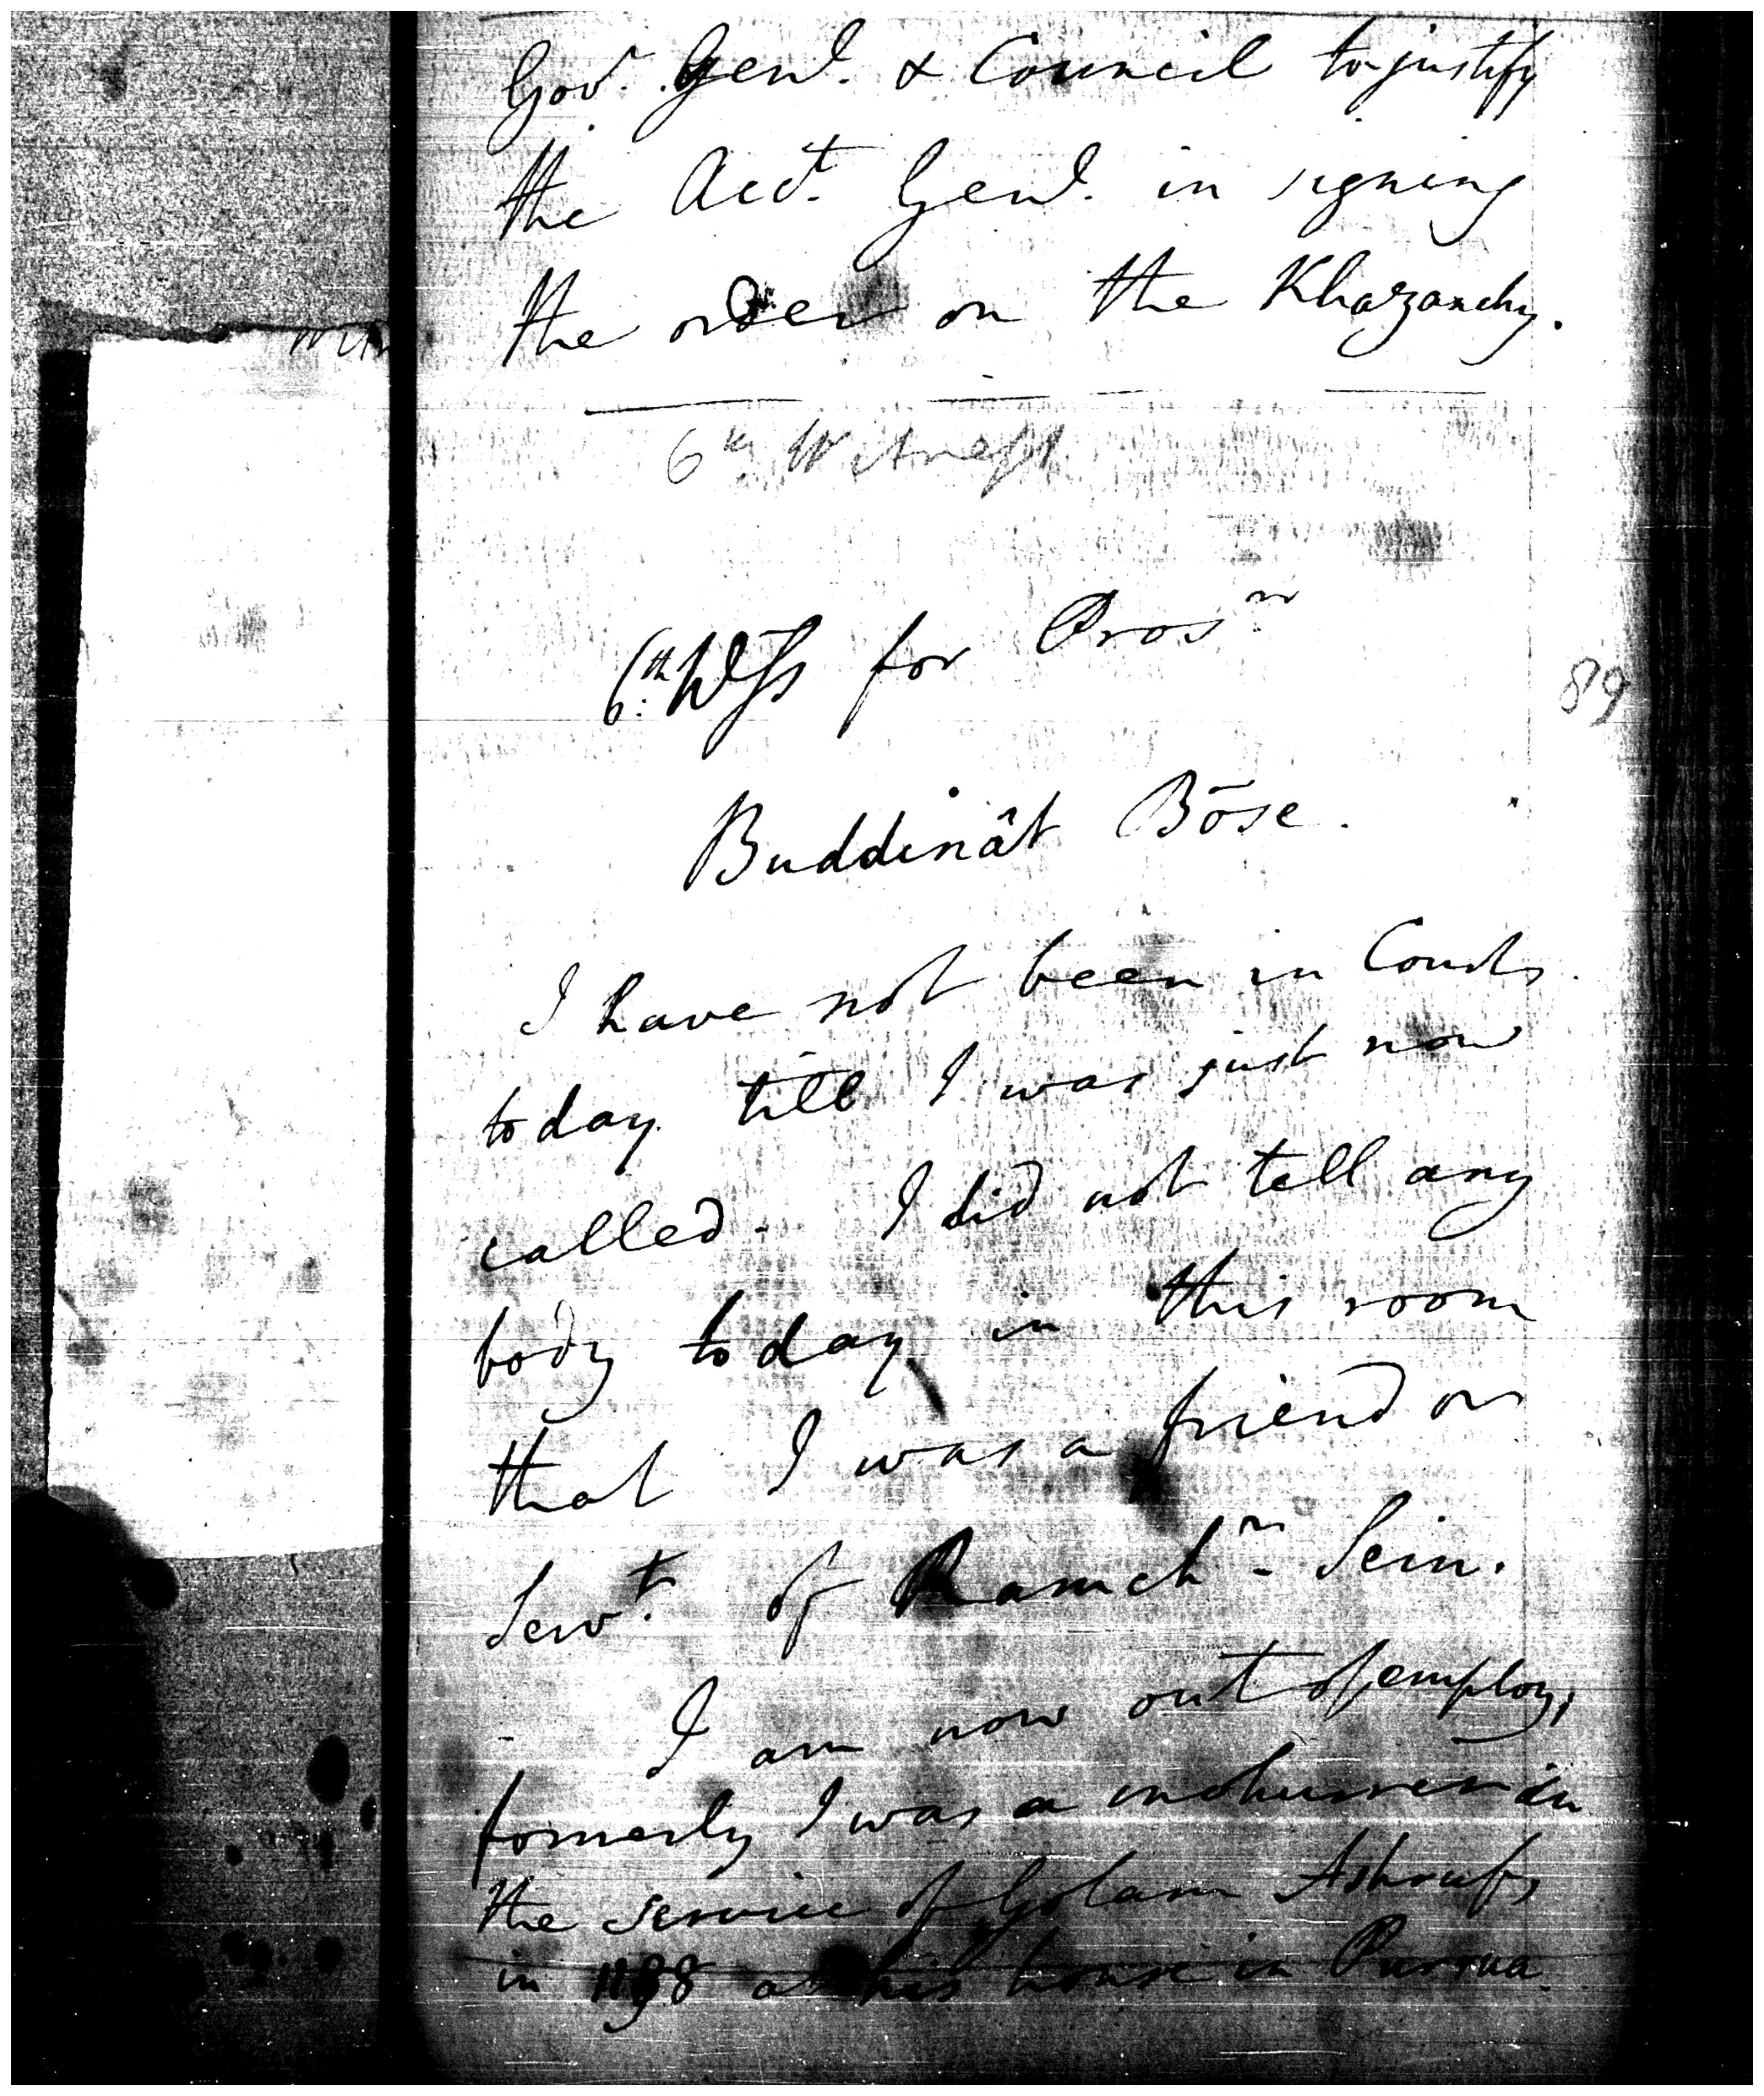 Govr. Genl. & Council to justify
the Acct. Genl. in signing
the order on the Khazanchy.
6th Witness
6th: Wss for Prosn
89
Buddinât Bōse.
I have not been in Court
today till I was just now
called. I did not tell any
body today in this room
that I was a friend or
Servt. of Ramchn. Sein.
I am now out of employ,
formerly I was a mohurrer in
the service of Golam Ashruf,
in 1188 at his house in Purrua.